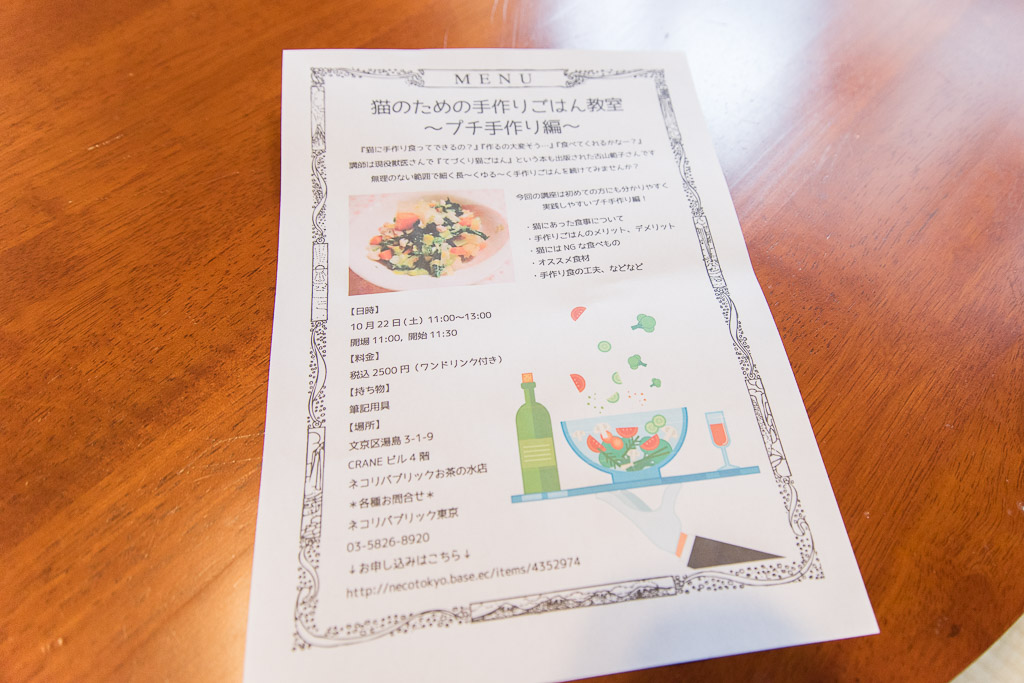 MENU
猫のための手作りごはん教室
～プチ手作り編～
『猫に手作り食ってできるの？』『作るの大変そう…』『食べてくれるかなー？』
講師は現役獣医さんで『てづくり猫ごはん』という本も出版された古山範子さんです
無理のない範囲で細く長～くゆる～く手作りごはんを続けてみませんか？
今回の講座は初めての方にも分かりやすく
実践しやすいプチ手作り編！
・猫にあった食事について
・手作りごはんのメリット、デメリット
・猫にはNGな食べもの
・オススメ食材
・手作り食の工夫、などなど
【日時】
10月22日（土）11:00～13:00
開場 11:00, 開始 11:30
【料金】
税込2500円（ワンドリンク付き）
【持ち物】
筆記用具
【場所】
文京区湯島3-1-9
CRANEビル4階
ネコリパブリックお茶の水店
＊各種お問合せ＊
ネコリパブリック東京
03-5826-8920
↓お申し込みはこちら↓
http://necotokyo.base.ec/items/4352974